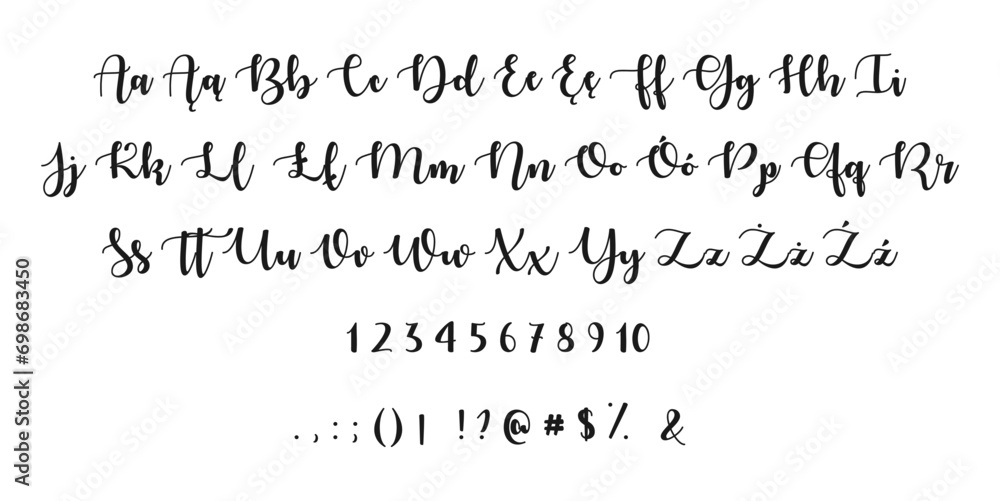 Aa Ąą Bb Cc Dd Ee Ęę Ff Gg Hh Ii
Jj Kk Ll Łł Mm Nn Oo Óó Pp Qq Rr
Ss Tt Uu Vv Ww Xx Yy Zz Żż Źź
1 2 3 4 5 6 7 8 9 10
. , : ; ( ) | ! ? @ # $ % &
Adobe Stock | #698683450